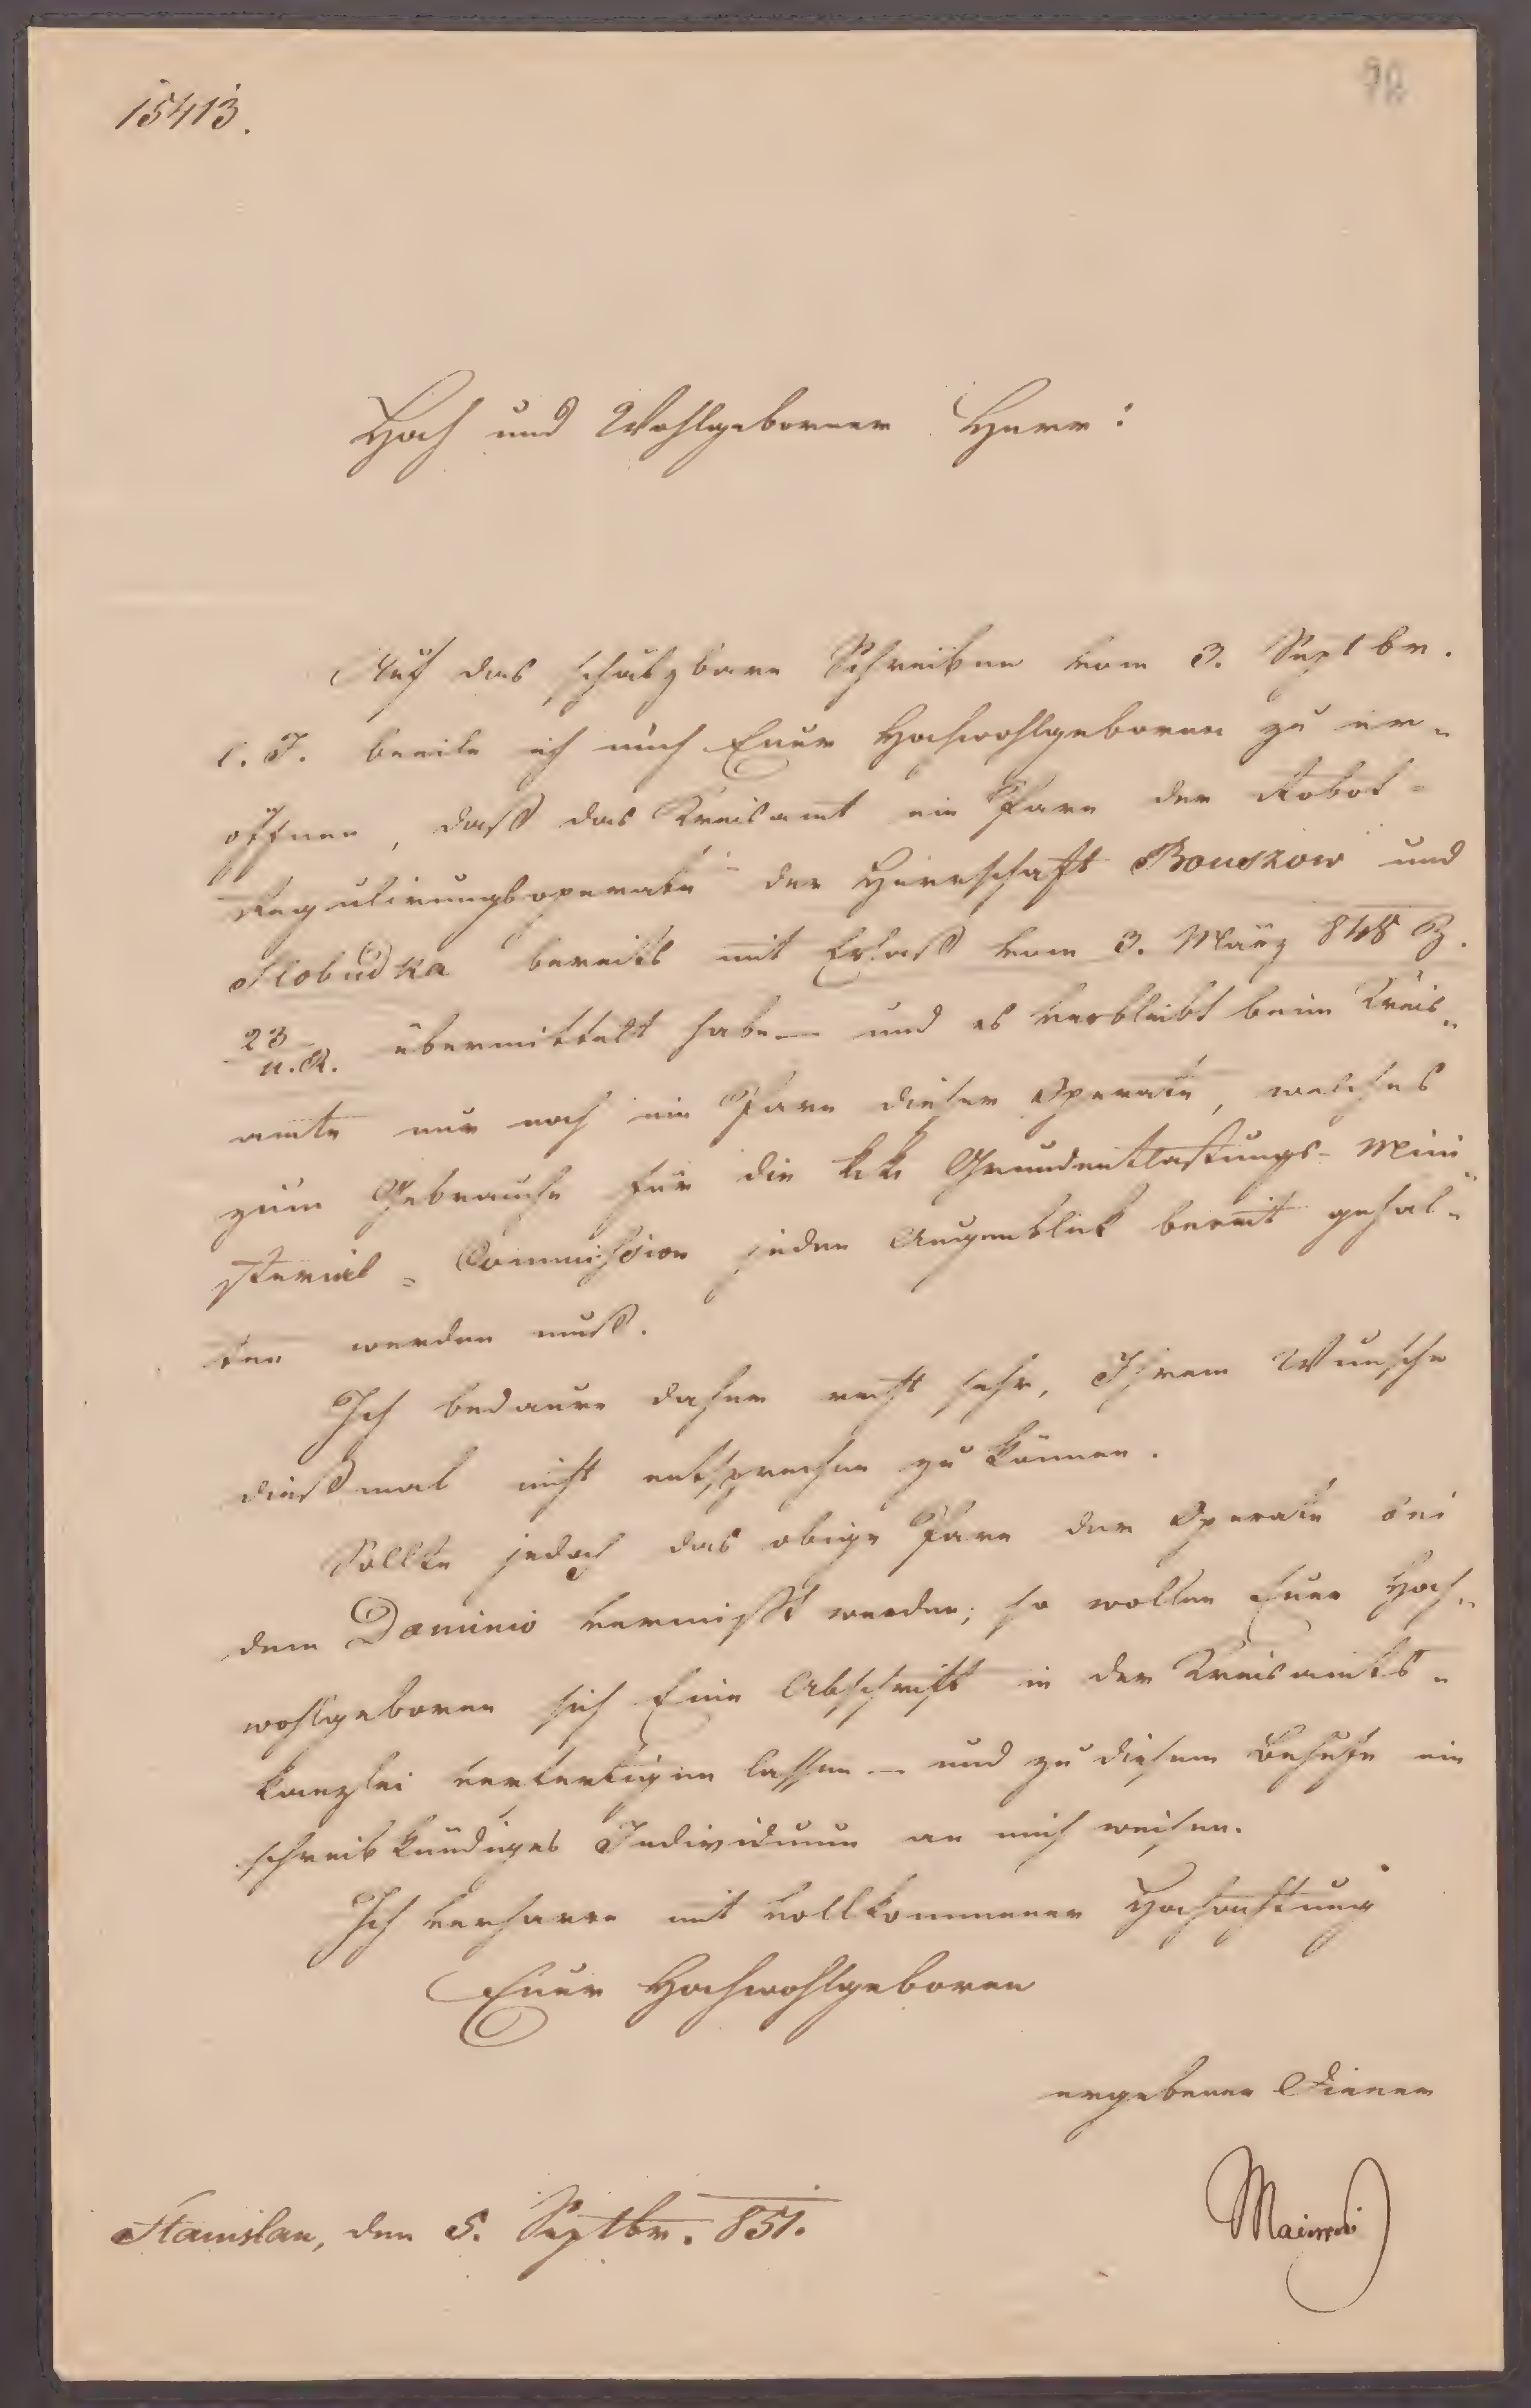 15413.
92
Hoch und Wohlgeborner Herr:
Auf das schätzbare Schreiben vom 3. Septbr.
l. J. beeile ich mich Euer Hochwohlgeboren zu er-
öffnen, daß das Kreisamt ein Pare der Robot-
Regulirungsoperate der Herrschaft Bouszow und
Slobudka bereits mit Erlaß vom 3. März 848 Z.
23/u.R. übermittelt habe — und es verbleibt beim Kreis-
amte nur noch ein Pare dieser Operate, welches
zum Gebrauche für die k.k. Grundentlastungs-Mini-
sterial-Commission jeden Augenblick bereit gehal-
ten werden muß.
Ich bedaure daher recht sehr, Ihrem Wunsche
dießmal nicht entsprechen zu können.
Sollte jedoch das obige Pare der Operate bei
dem Dominio vermißt werden; so wollen Euer Hoch-
wohlgeboren sich Eine Abschrift in der Kreisamts-
kanzlei verfertigen lassen — und zu diesem Behufe ein
schreibkündiges Individuum an mich weisen.
Ich verharre mit vollkommener Hochachtung
Euer Hochwohlgeboren
ergebener Diener
Stanislau, den 5. Septbr. 851.